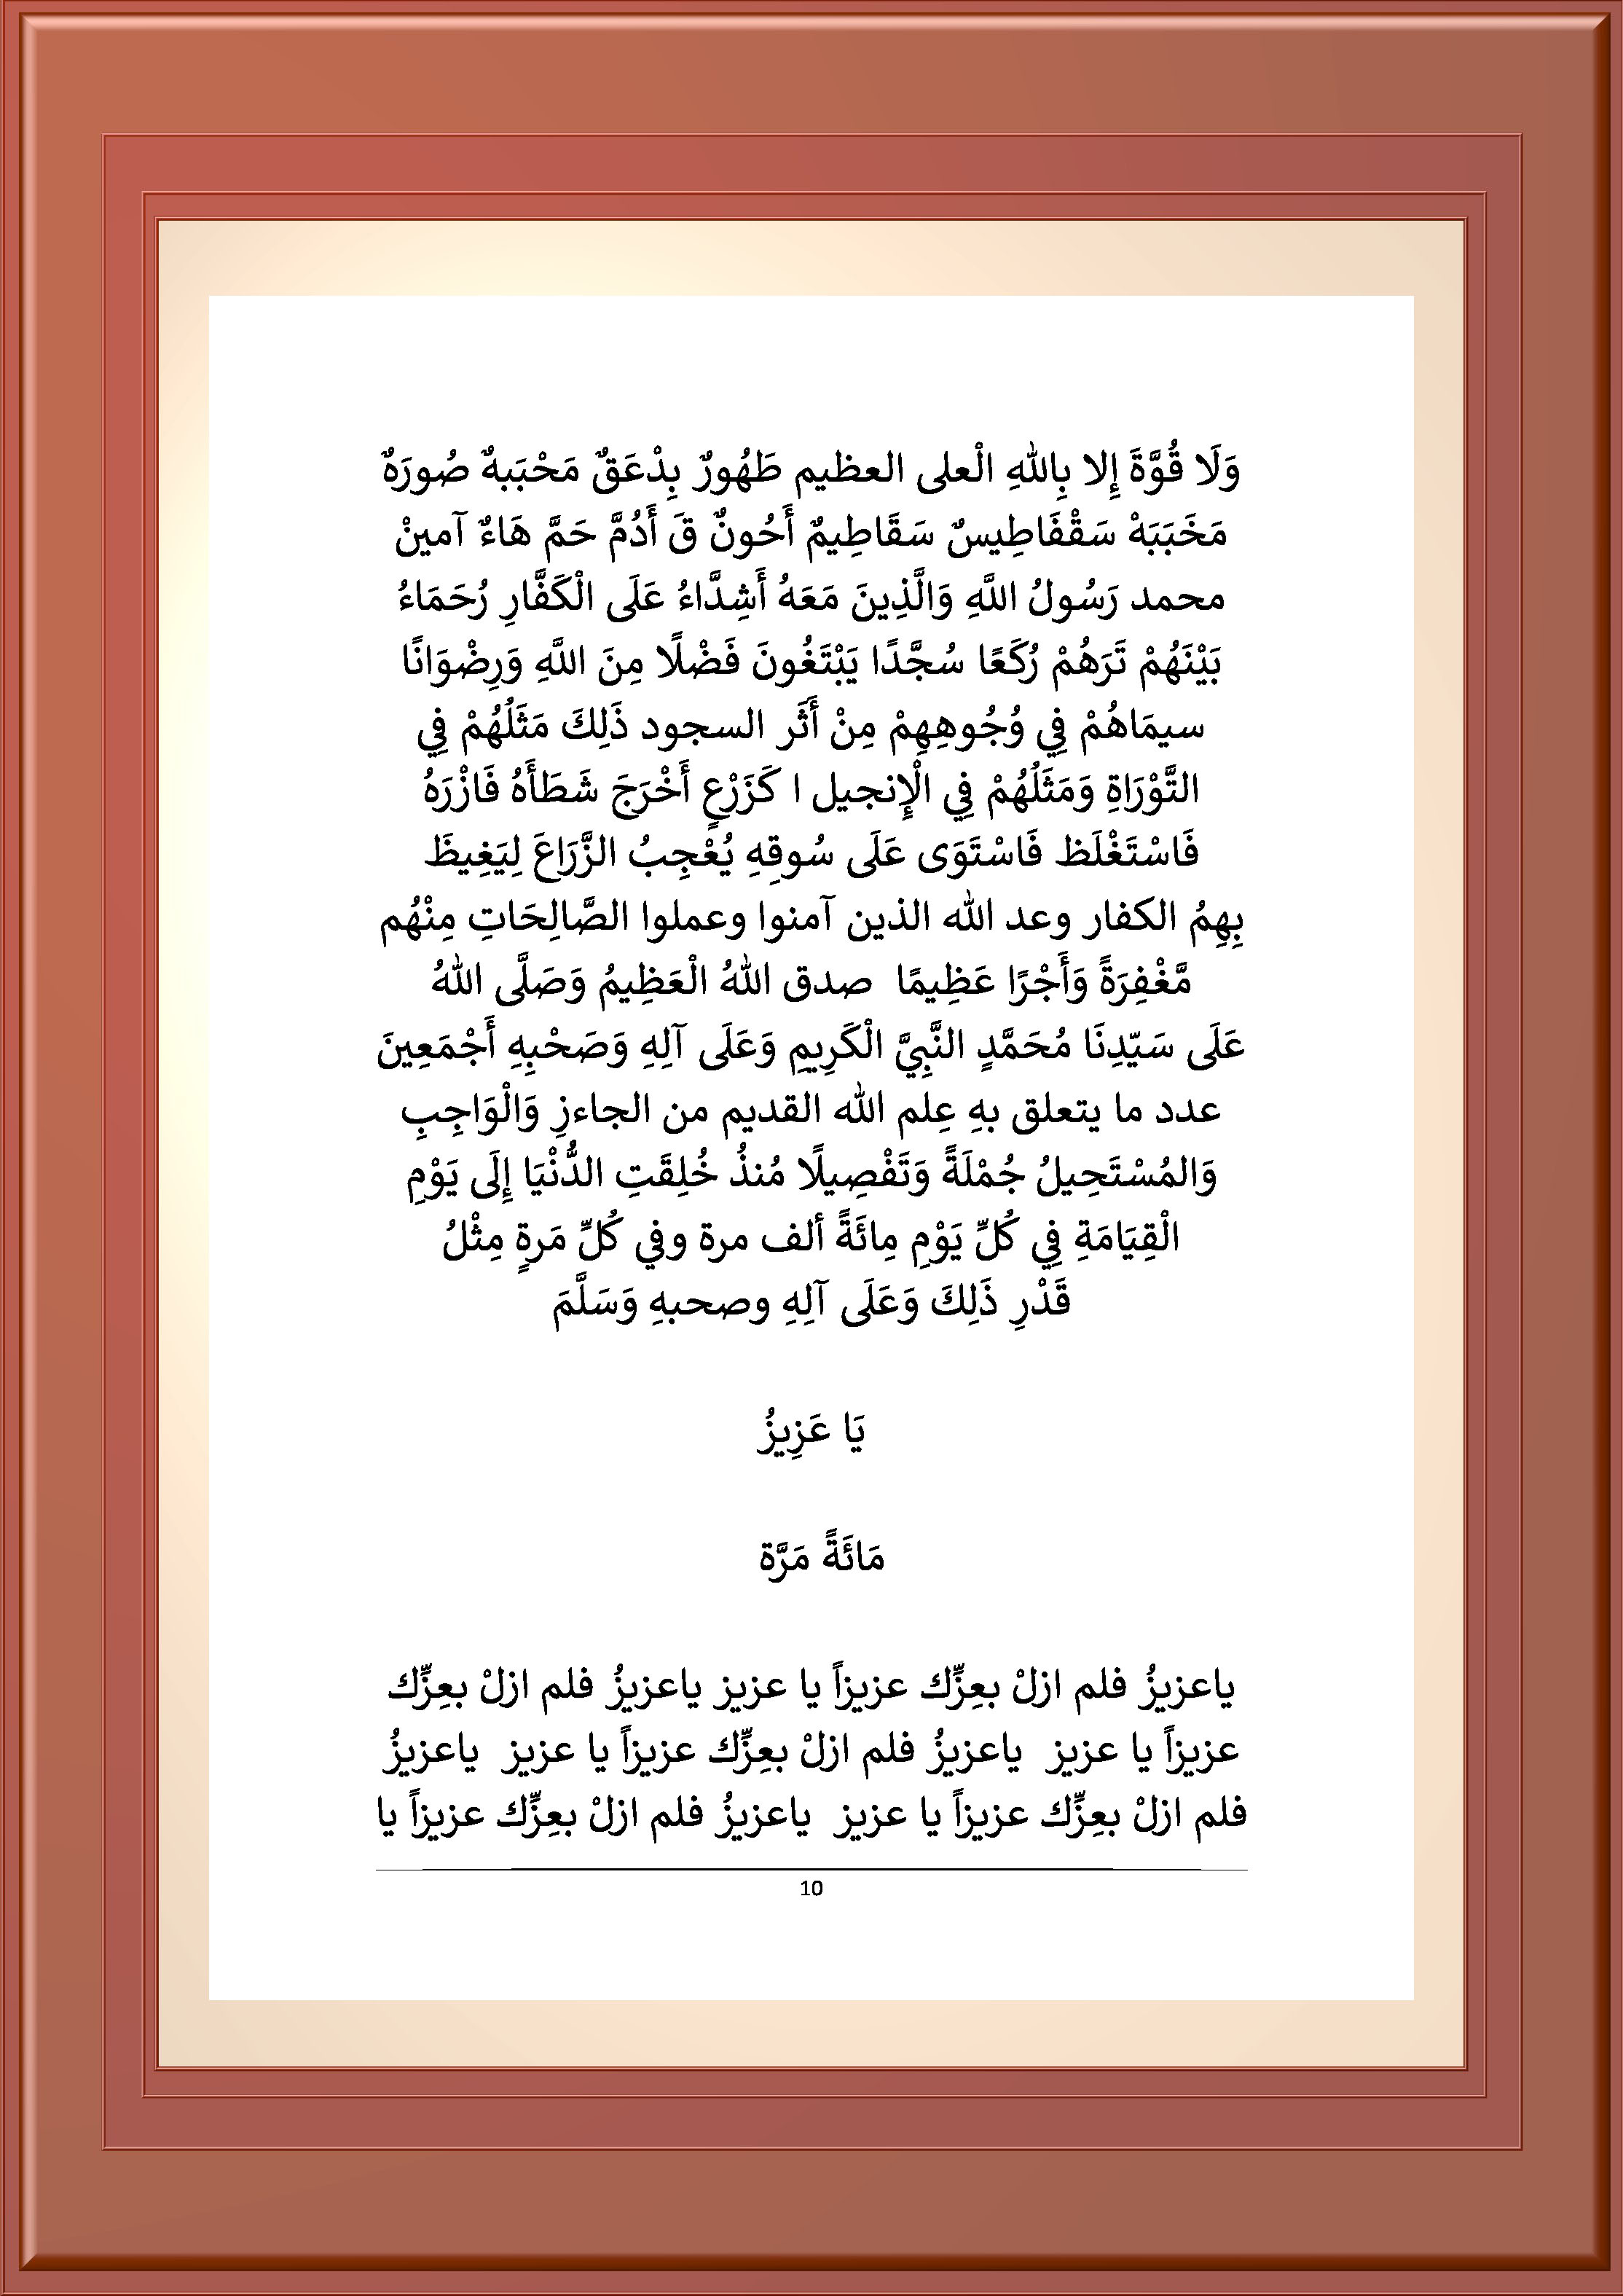 وَلَا قُوَّةَ إِلا بِاللهِ الْعلى العظيم طَهُورٌ بِدْعَقٌ مَحْبَببهٌ صُورَهٌ
مَخَبَبَهْ سَقْفَاطِيسٌ سَقَّاطِيمٌ أَحُونٌ قَ أَدُمَّ حَمَّ هَاءٌ آمينْ
محمد رَسُولُ اللَّهِ وَالَّذِينَ مَعَهُ أَشِدَّاءُ عَلَى الْكَفَّارِ رُحَمَاءُ
بَيْنَهُمْ تَرَهُمْ رُكَعًا سُجَّدًا يَبْتَغُونَ فَضْلًا مِنَ اللَّهِ وَرِضْوَانًا
سيمَاهُمْ فِي وُجُوهِهِمْ مِنْ أَثَر السجود ذَلِكَ مَثَلُهُمْ فِي
التَّوْرَاةِ وَمَثَلُهُمْ فِي الْإِنجيل ا كَزَرْعٍ أَخْرَجَ شَطَأَهُ فَازْرَهُ
فَاسْتَغْلَظ فَاسْتَوَى عَلَى سُوقِهِ يُعْجِبُ الزَّرَاعَ لِيَغِيظَ
بِهِمُ الكفار وعد الله الذين آمنوا وعملوا الصَّالِحَاتِ مِنْهُم
مَّغْفِرَةً وَأَجْرًا عَظِيمًا صدق اللهُ الْعَظِيمُ وَصَلَّى اللهُ
عَلَى سَيّدِنَا مُحَمَّدٍ النَّبِيَّ الْكَرِيمِ وَعَلَى آلِهِ وَصَحْبِهِ أَجْمَعِينَ
عدد ما يتعلق بهِ عِلم الله القديم من الجاءزِ وَالْوَاجِبِ
وَالمُسْتَحِيلُ جُمْلَةً وَتَفْصِيلًا مُنذُ خُلِقَتِ الدُّنْيَا إِلَى يَوْمِ
الْقِيَامَةِ فِي كُلِّ يَوْمِ مِائَةً ألف مرة وفي كُلِّ مَرةٍ مِثْلُ
قَدْرِ ذَلِكَ وَعَلَى آلِهِ وصحبهِ وَسَلَّمَ
يَا عَزِيزُ
مَائَةً مَرَّة
ياعزيزُ فلم ازلْ بعِزِّك عزيزاً يا عزيز ياعزيزُ فلم ازلْ بعِزِّك
عزيزاً يا عزيز ياعزيزُ فلم ازلْ بعِزِّك عزيزاً يا عزيز ياعزيزُ
فلم ازلْ بعِزِّك عزيزاً يا عزيز ياعزيزُ فلم ازلْ بعِزِّك عزيزاً يا
10